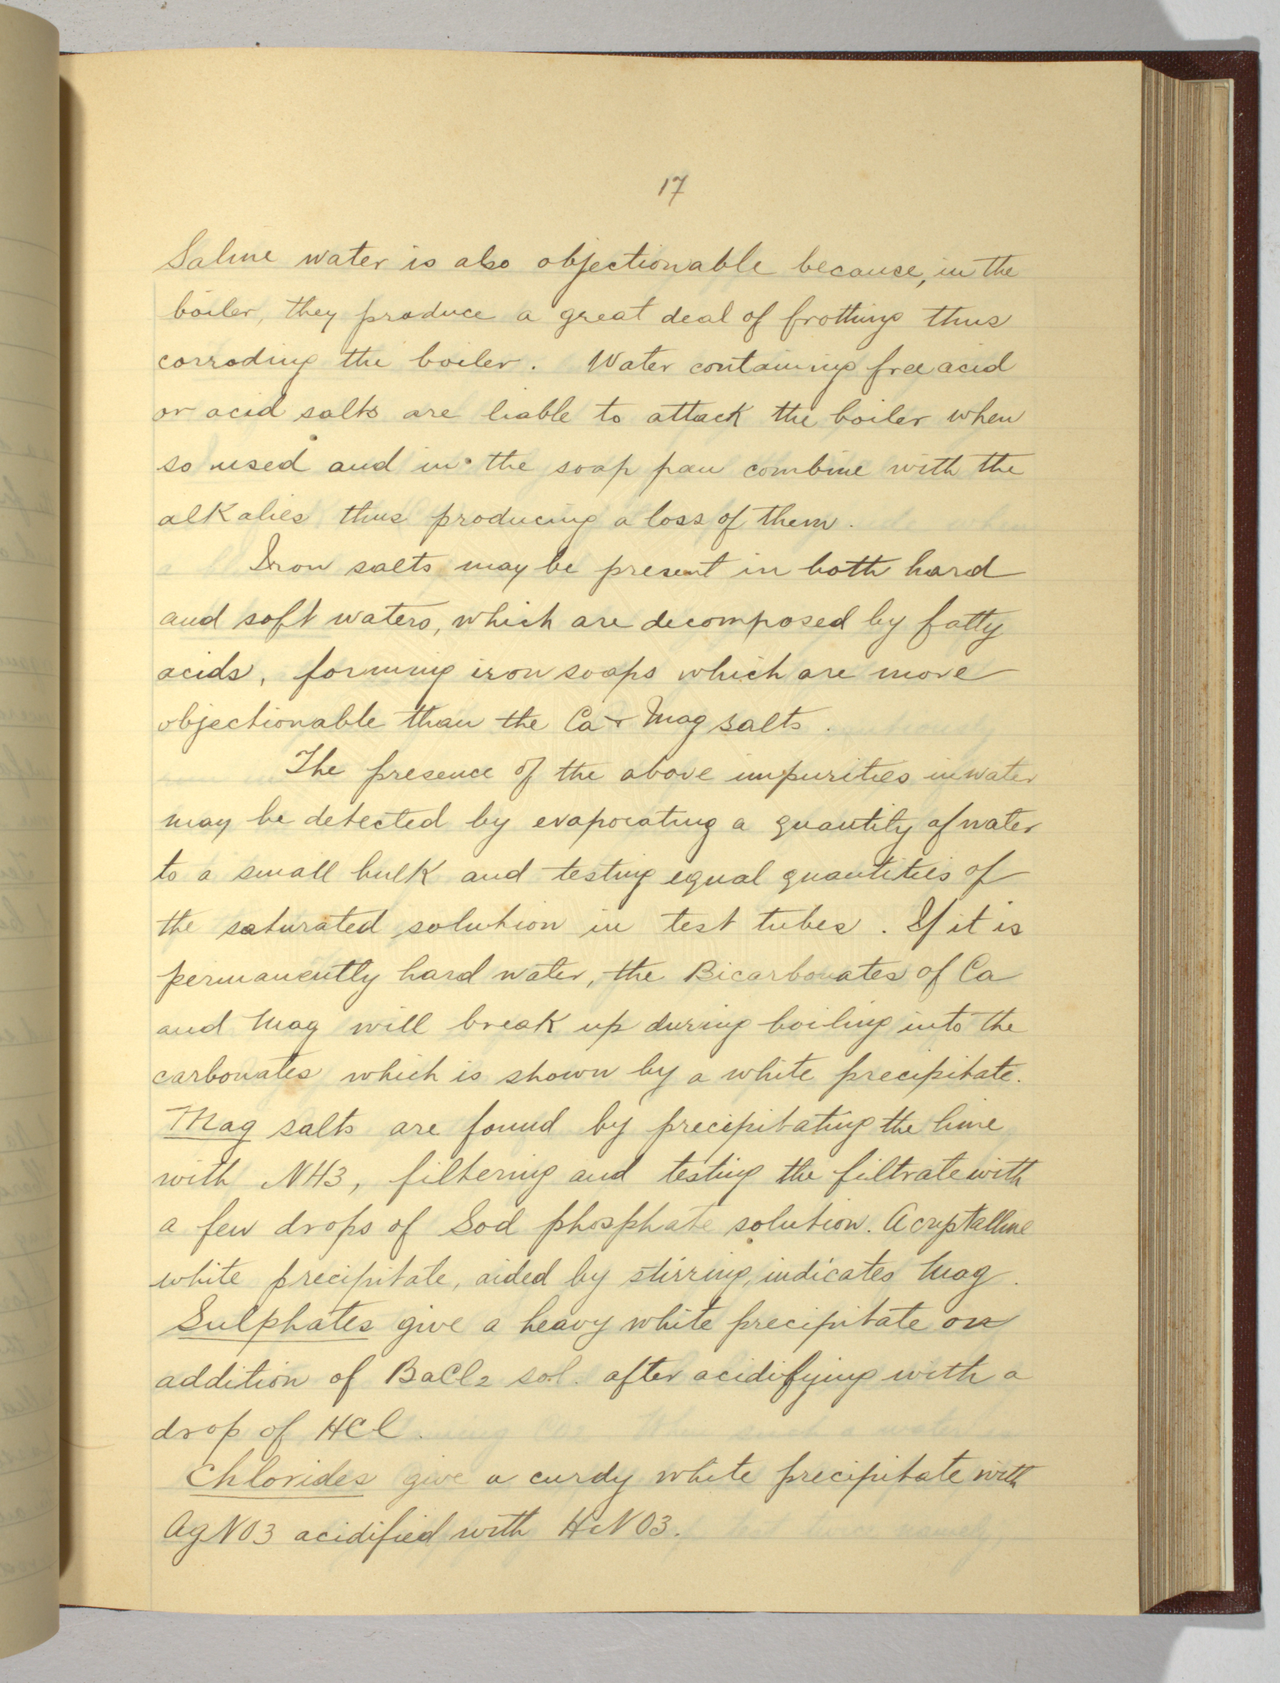 17
Saline water is also objectionable because, in the
boiler, they produce a great deal of frothing thus
corroding the boiler. Water containing free acid
or acid salts are liable to attack the boiler when
so used and in the soap pan combine with the
alkalies thus producing a loss of them.
Iron salts may be present in both hard
and soft waters, which are decomposed by fatty
acids, forming iron soaps which are more
objectionable than the Ca + Mag salts.
The presence of the above impurities in water
may be detected by evaporating a quantity of water
to a small bulk and testing equal quantities of
the saturated solution in test tubes. If it is
permanently hard water, the Bicarbonates of Ca
and Mag will break up during boiling into the
carbonates which is shown by a white precipitate.
Mag salts are found by precipitating the lime
with NH3, filtering and testing the filtrate with
a few drops of Sod phosphate solution. A cryptalline
white precipitate, aided by stirring, indicates Mag.
Sulphates give a heavy white precipitate on
addition of BaCl2 sol. after acidifying with a
drop of HCl.
Chlorides give a curdy white precipitate with
AgNO3 acidified with HNO3.